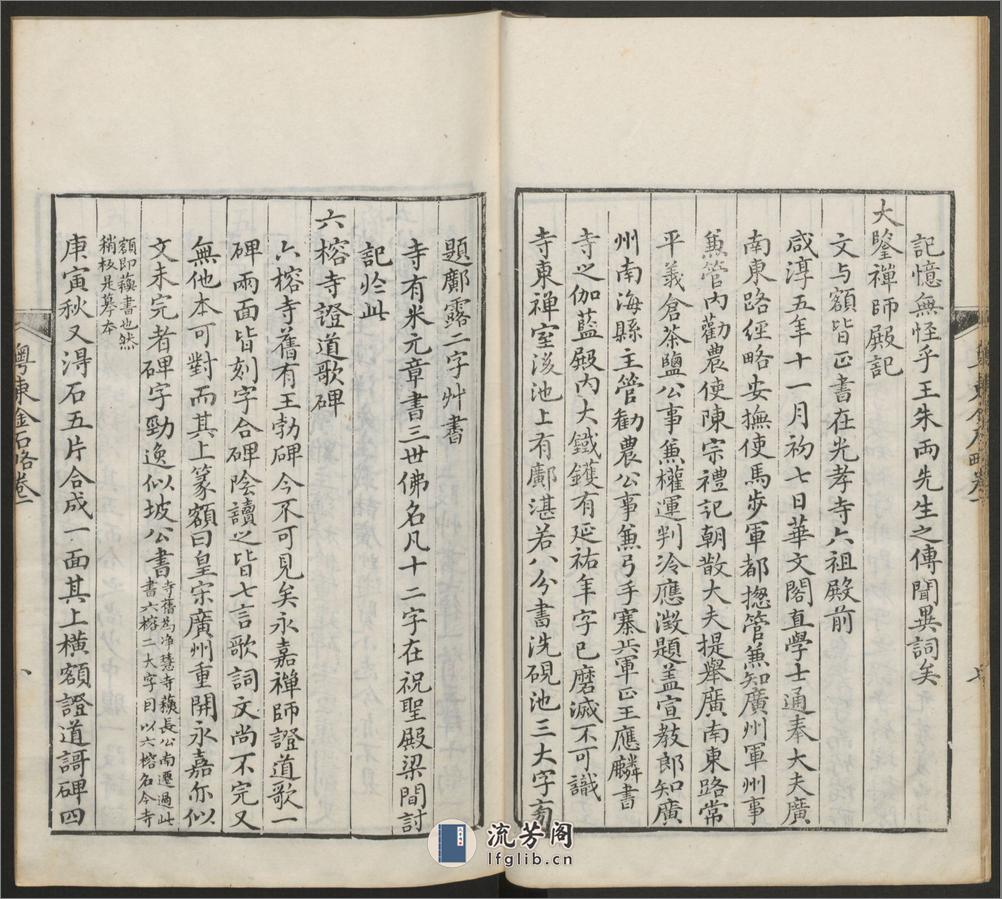 記憶無怪乎王朱兩先生之傳聞異詞矣
大鑒禪師殿記
文与額皆正書在光孝寺六祖殿前
咸淳五年十一月初七日華文閣直學士通奉大夫廣
南東路經略安撫使馬步軍都揔管兼知廣州軍州事
兼管內勸農使陳宗禮記朝散大夫提舉廣南東路常
平義倉茶鹽公事兼權運判泠應澂題盖宣教郎知廣
州南海縣主管勸農公事兼弓手寨兵軍正王應麟書
寺之伽藍殿內大鐵鑊有延祐年字已磨滅不可識
寺東禪室後池上有鄺湛若八分書洗硯池三大字旁
題鄺露二字艸書
寺有米元章書三世佛名凡十二字在祝聖殿梁間討
記於此
六榕寺證道歌碑
六榕寺舊有王勃碑今不可見矣永嘉禪師證道歌一
碑兩面皆刻字合碑陰讀之皆七言歌詞文尚不完又
無他本可對而其上篆額曰皇宋廣州重開永嘉亦似
文未完者碑字勁逸似坡公書
寺舊為净慧寺蘓長公南遷過此
書六榕二大字目以六榕名今寺
額即蘓書也然
稍核是摹本
庚寅秋又淂石五片合成一面其上橫額證道謌碑四
粤東金石略卷一
八
流芳阁
lfglib.cn